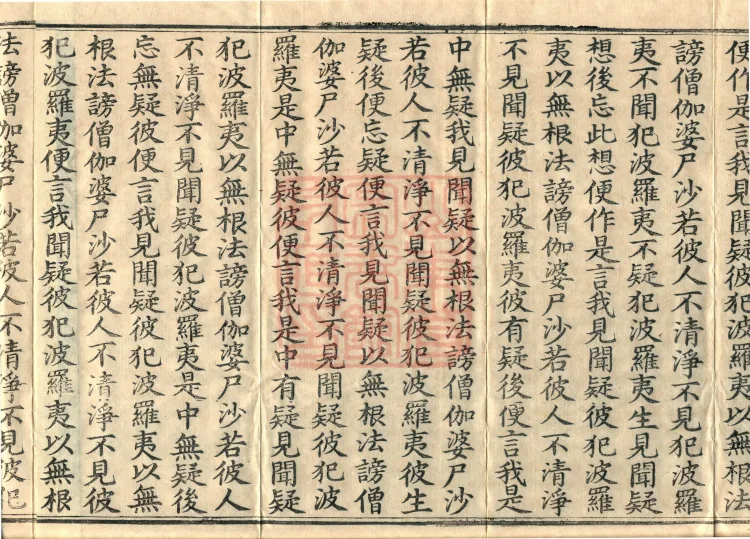 便作是言我見聞疑彼犯波羅夷以無根法
謗僧伽婆尸沙若彼人不清淨不見犯波羅
夷不聞犯波羅夷不疑犯波羅夷生見聞疑
想後忘此想便作是言我見聞疑彼犯波羅
夷以無根法謗僧伽婆尸沙若彼人不清淨
不見聞疑彼犯波羅夷彼有疑後便言我是
中無疑我見聞疑以無根法謗僧伽婆尸沙
若彼人不清淨不見聞疑彼犯波羅夷彼生
疑後便忘疑便言我見聞疑以無根法謗僧
伽婆尸沙若彼人不清淨不見聞疑彼犯波
羅夷是中無疑彼便言我是中有疑見聞疑
犯波羅夷以無根法謗僧伽婆尸沙若彼人
不清淨不見聞疑彼犯波羅夷是中無疑後
忘無疑彼便言我見聞疑彼犯波羅夷以無
根法謗僧伽婆尸沙若彼人不清淨不見彼
犯波羅夷便言我聞疑彼犯波羅夷以無根
法謗僧伽婆尸沙若彼人不清淨不見彼犯